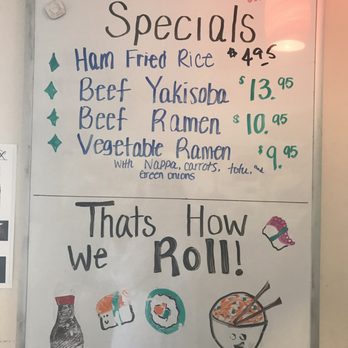 Specials
Ham Fried Rice $4.95
Beef Yakisoba $13.95
Beef Ramen $10.95
Vegetable Ramen $9.95
with Nappa, carrots, tofu, ~
Green onions
Thats How
we Roll!